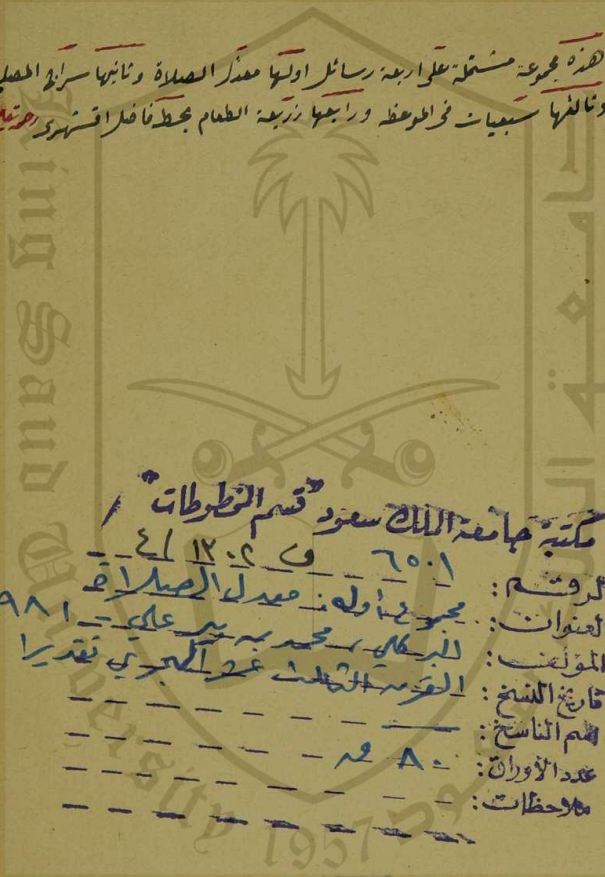 هذه مجموعة مشتملة على اربعة رسائل اولها معدل الصلاة وثانيها سراج المصلي
وثالثها سبعيات في الموعظه ورابعها زريعة الطعام بخط فاضل
مكتبة جامعة الملك سعود "قسم المخطوطات"
الرقم: ٦٥٠١ ف ١٣٠٢ / ٤
العنوان: مجموع أوله: معدل الصلاة
المؤلف: البركلي، محمد بن بير علي - ٩٨١
تاريخ النسخ: القرن الثالث عشر الهجري تقديرا
اسم الناسخ:
عدد الأوراق: ٨٠ ق
ملاحظات:
King Saud University 1957
جامعة الملك سعود